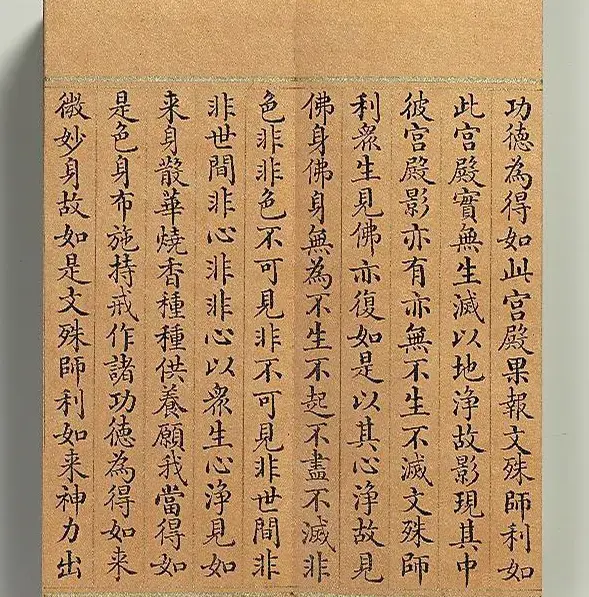 功德為得如此宮殿果報文殊師利如
此宮殿實無生滅以地淨故影現其中
彼宮殿影亦有亦無不生不滅文殊師
利眾生見佛亦復如是以其心淨故見
佛身佛身無為不生不起不盡不滅非
色非非色不可見非不可見非世間非
非世間非心非非心以眾生心淨見如
来身散華燒香種種供養願我當得如
是色身布施持戒作諸功德為得如来
微妙身故如是文殊師利如来神力出